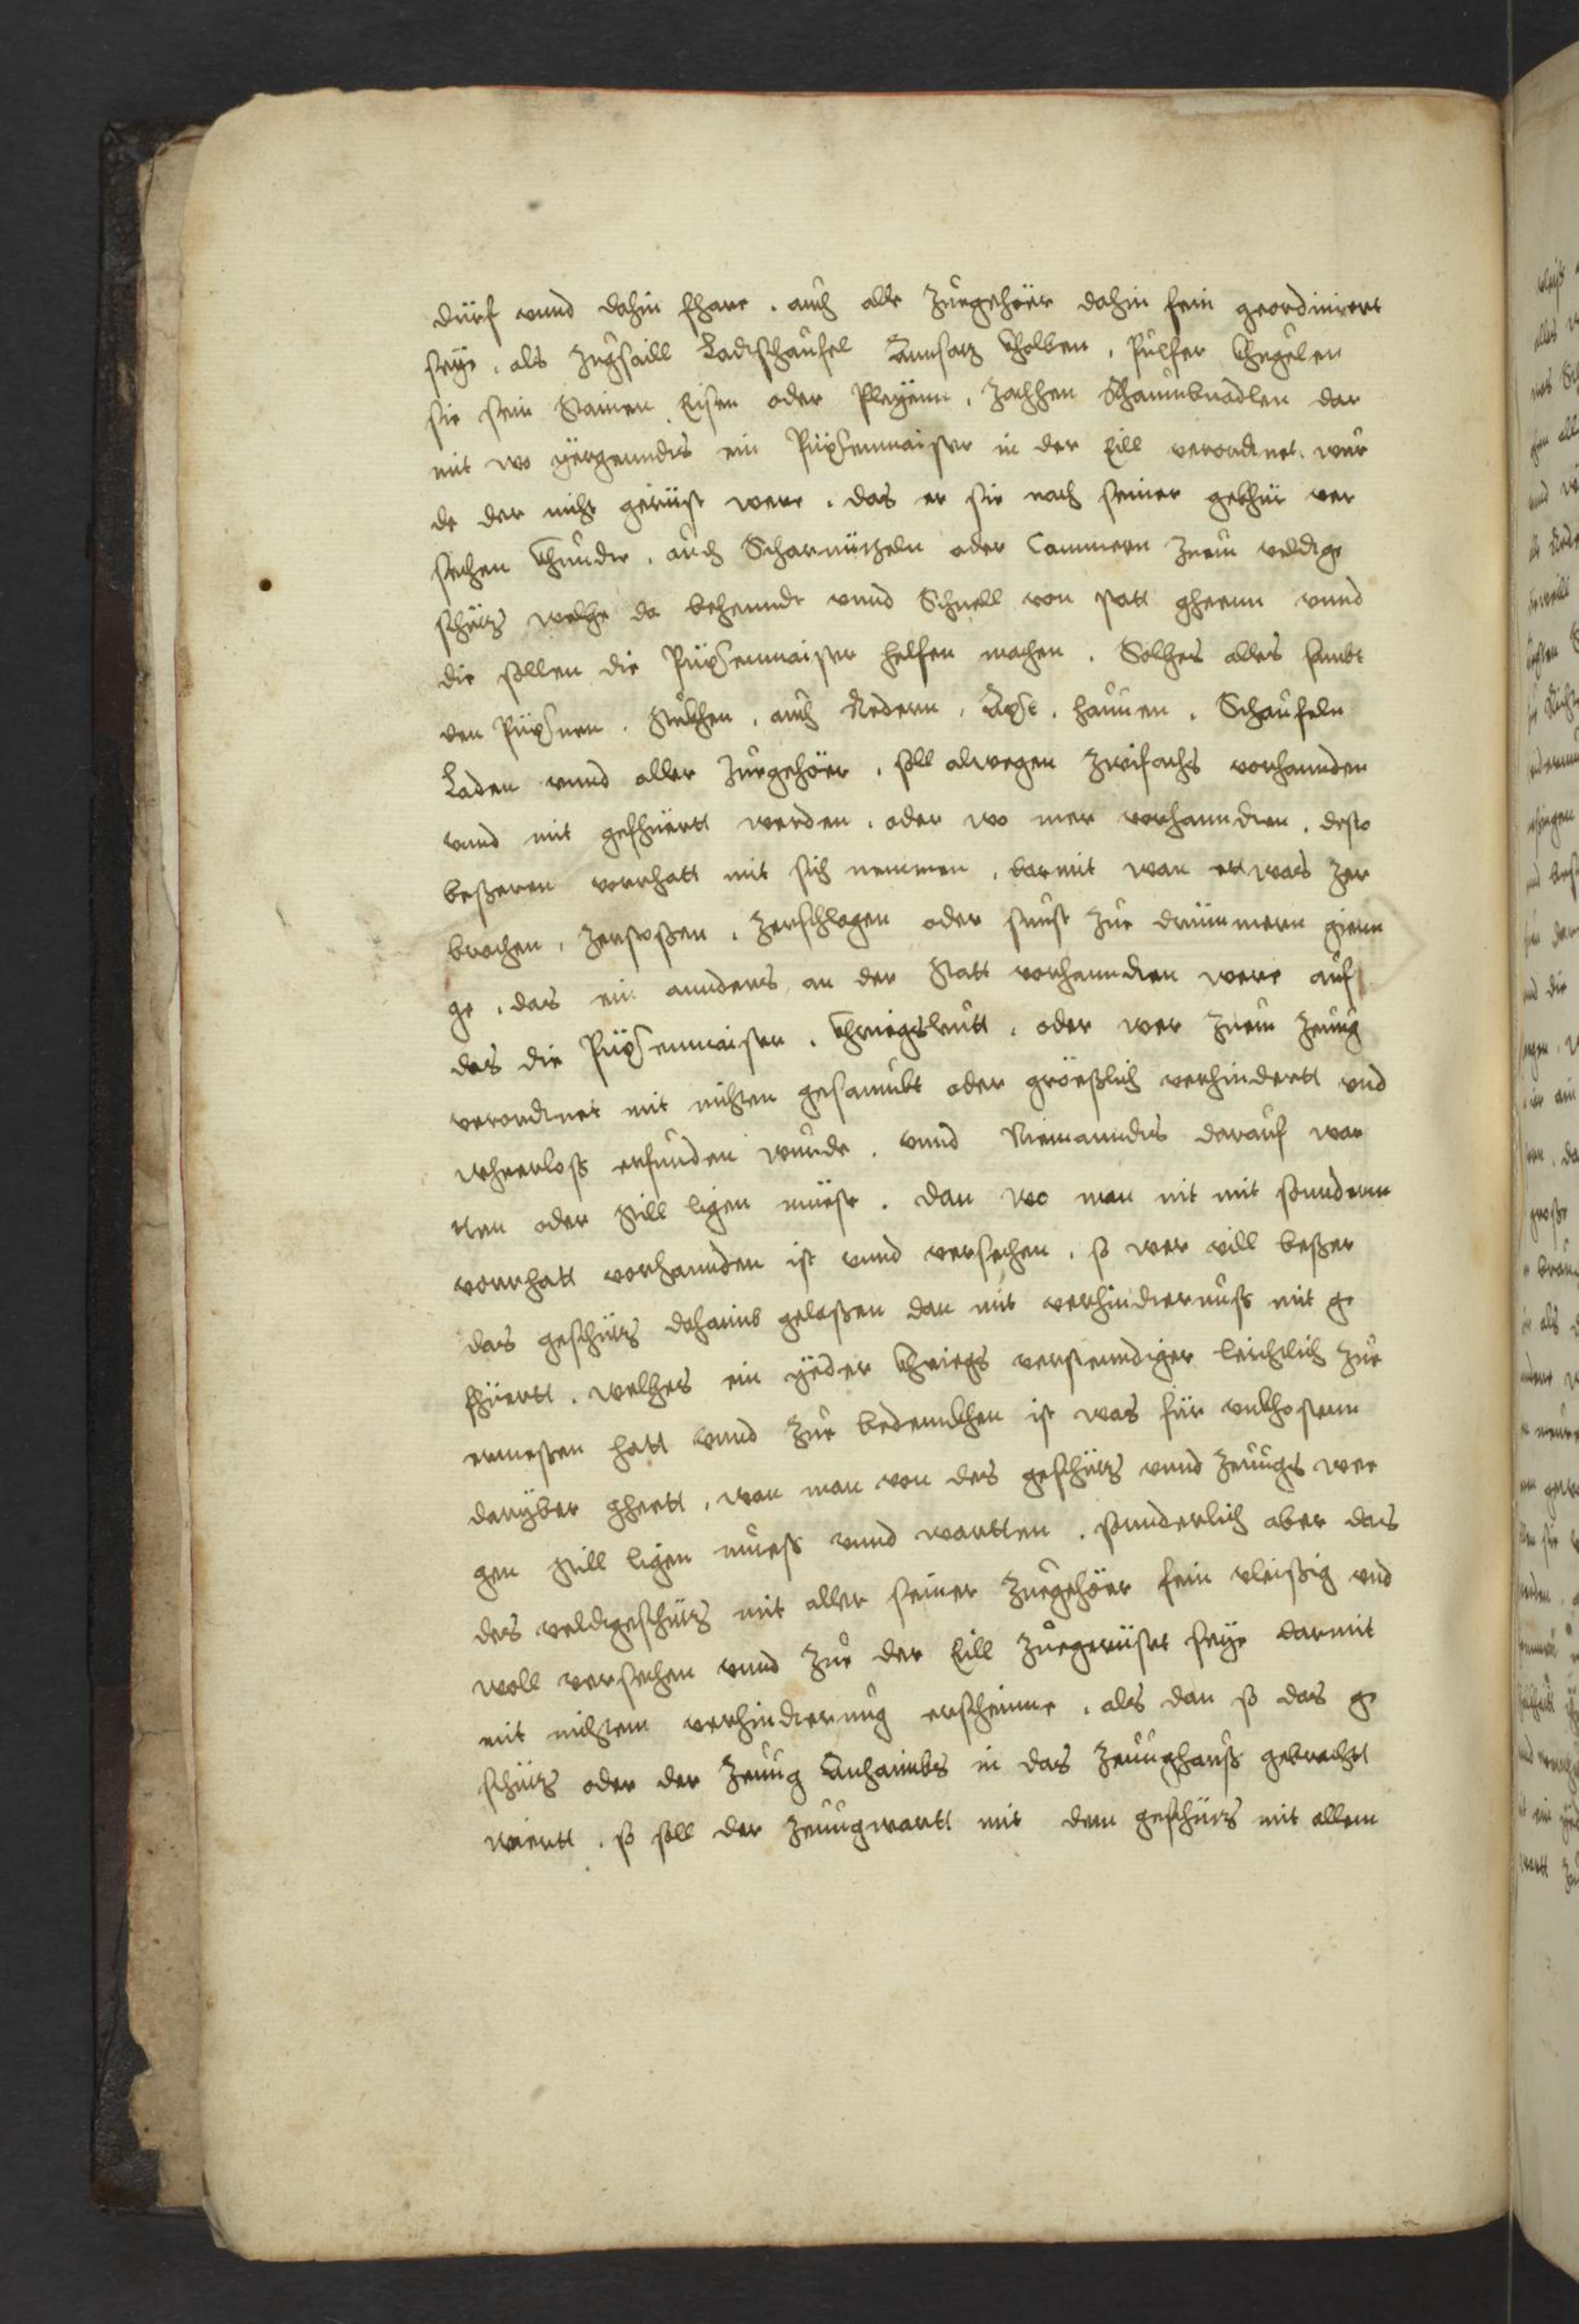 dürf vnnd dahin fhare . auch alle Zuegehöer dahin fein geordiniert
seye . als Zugsaill Ladtschaufel Annsatz Kholben . Pulfer Khuglen
sie sein Stainen Eisen oder Pleyenn . Zachhen Schaumbnadlen dar
mit wo yergenndts ein Püxsenmaister in der Eill verordtnet wur
de der nicht gerüst were . das er sie nach seiner gebhür ver
sechen khunde . auch Scharnützeln oder Cammern Zuem veldtge
schütz welche da behennde vnnd Schnell von statt gheenn vnnd
die sollen die Püxsenmaister helfen machen . Solches alles sambt
den Püxsnen . Stukhen . auch Redern . Äxst . hauuen . Schaufeln
Laden vnnd aller Zuegehöer . soll alwegen Zwifachs vorhannden
vnnd mit gefhüertt werden . oder wo mer vorhannden . desto
beßeren vorrhatt mit sich nemmen . darmit wan ettwas Zer
brochen . Zerstoßen . Zerschlagen oder sunst Zue drümmern gienn
ge . das ein annders an der Statt vorhannden were auf
das die Püxsenmaister . Khriegsleutt . oder wer Zuem Zeuug
verordtnet mit nichten gesaumbt oder größlich verhindertt vnd
wheerloß erfunden wurde . vnnd Niemanndts darauf war
tten oder still ligen müeste . dan wo man nit mit sonndernn
vorrhatt vorhannden ist vnnd versechen . so wer vill beßer
das geschütz dahaimb gelaßen dan mit verhindternuß mit ge
fhüertt . welches ein yeder Khriegs verstenndiger leichtlich Zue
ermeßen hatt vnnd Zue bedennkhen ist was für vnkhostenn
darüber gheett . wan man von des geschütz vnnd Zeuugs we
gen still ligen mueß vnnd wartten . sonnderlich aber das
das veldtgeschütz mit aller seiner Zuegehöer fein vleißig vnd
woll versechen vnnd Zue der Eill Zuegerüstet seye darmit
mit nichtem verhinderung erscheinne . als dan so das ge
schütz oder der Zeuug Anhaimbs in das Zeuughauß gebracht
wiertt . so soll der Zeuugwartt mit dem geschütz mit allem